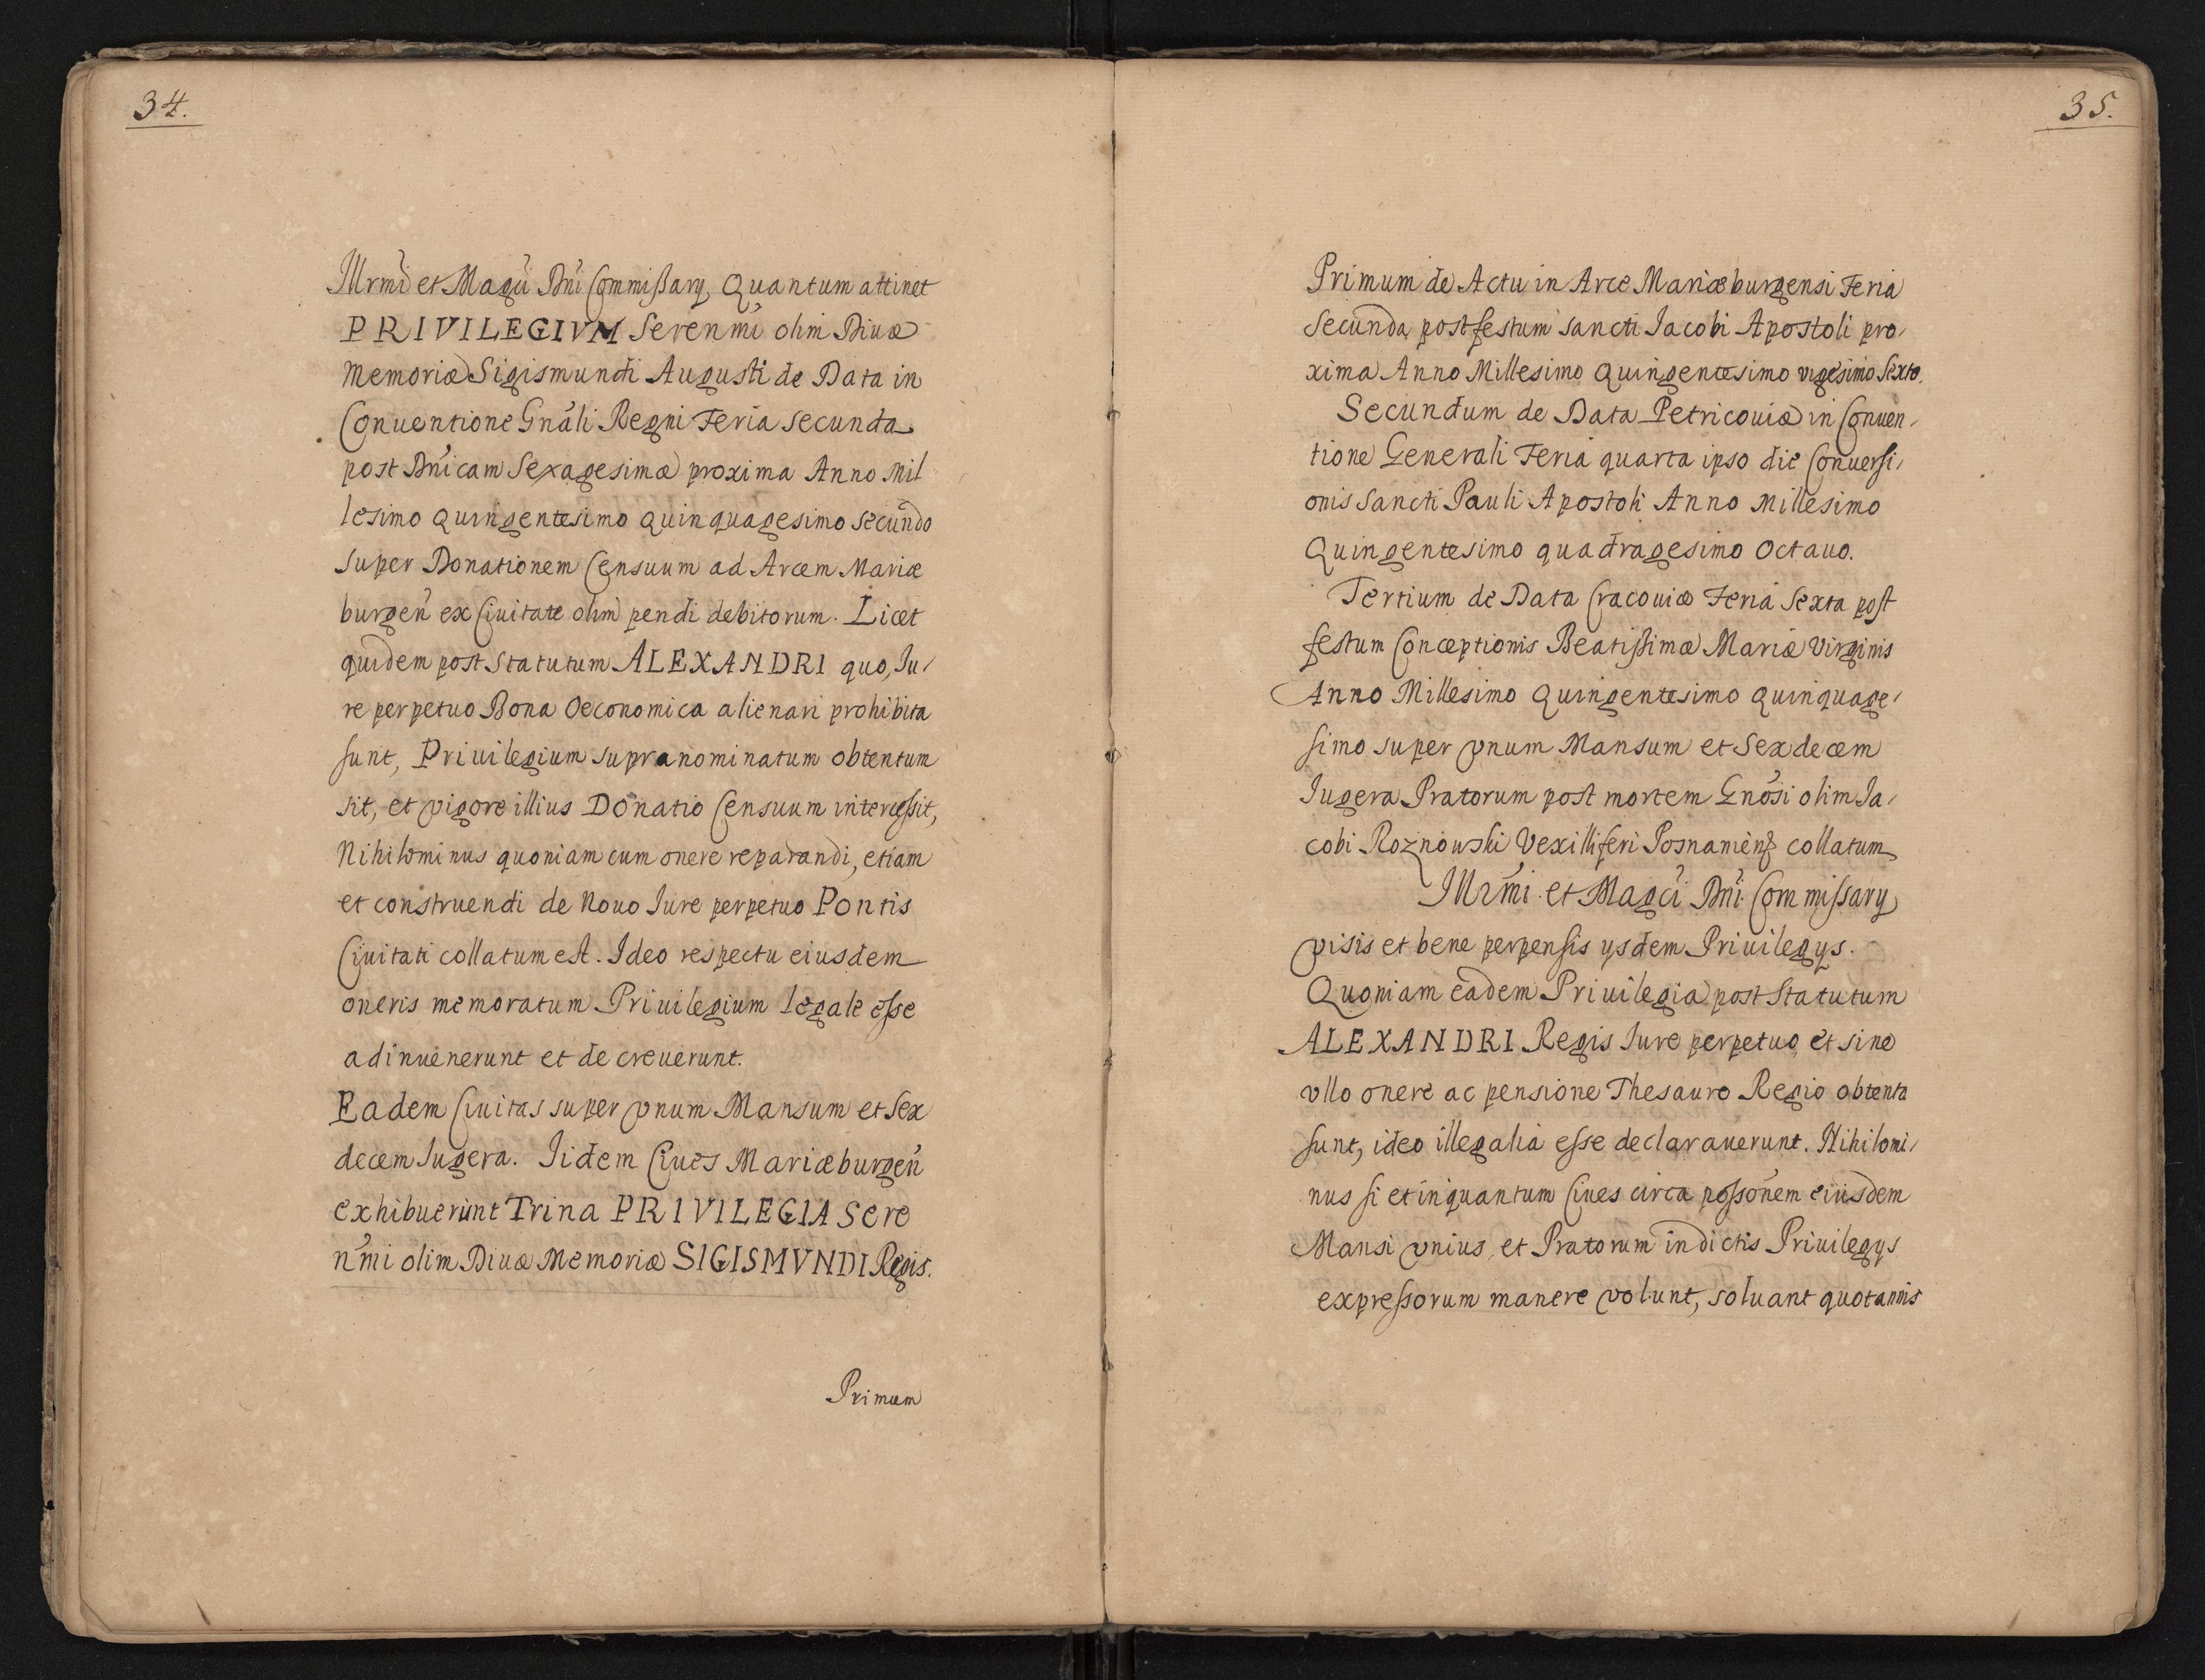 34.
Illrmi et Magci Dni Commißarij, Quantum attinet
PRIVILEGIVM Serenmi olim Diuæ
Memoriæ Sigismundi Augusti de Data in
Conuentione Gnali Regni Feria secunda
post Dnicam Sexagesimæ proxima Anno Mil
lesimo Quingentesimo Quinquagesimo secundo
super Donationem Censuum ad Arcem Mariæ
burgen ex Ciuitate olim pendi debitorum. Licet
quidem post Statutum ALEXANDRI quo, Iu/
re perpetuo Bona Oeconomica alienari prohibita
sunt, Priuilegium supranominatum obtentum
sit, et vigore illius Donatio Censuum intercessit,
Nihilominus quoniam cum onere reparandi, etiam
et construendi de Nouo Iure perpetuo Pontis
Ciuitati collatum est. Ideo respectu eiusdem
oneris memoratum Priuilegium legale esse
adinuenerunt et decreuerunt.
Eadem Ciuitas super vnum Mansum et Sex
decem Iugera. Iidem Ciues Mariæburgen
exhibuerunt Trina PRIVILEGIA Sere
nmi olim Diuæ Memoriæ SIGISMVNDI Regis.
Primum
35.
Primum de Actu in Arce Mariæburgensi Feria
Secunda post festum Sancti Iacobi Apostoli pro/
xima Anno Millesimo Quingentesimo vigesimo Sexto.
Secundum de Data Petricouiæ in Conuen/
tione Generali Feria quarta ipso die Conuersi/
onis Sancti Pauli Apostoli Anno Millesimo
Quingentesimo quadragesimo Octauo.
Tertium de Data Cracouiæ Feria Sexta post
festum Conceptionis Beatißimæ Mariæ Virginis
Anno Millesimo Quingentesimo Quinquage/
simo super vnum Mansum et Sexdecem
Iugera Pratorum post mortem Gnosi olim Ia/
cobi Roznowski Vexilliferi Posnaniens collatum
Illrmi et Magci Dni Commissarij
visis et bene perpensis ijsdem Priuilegijs.
Quoniam eadem Priuilegia post Statutum
ALEXANDRI Regis Iure perpetuo et sine
vllo onere ac pensione Thesauro Regio obtenta
sunt, ideo illegalia esse declarauerunt. Nihilomi/
nus si et inquantum Ciues circa possonem eiusdem
Mansi vnius, et Pratorum in dictis Priuilegijs
expressorum manere volunt, soluant quotannis